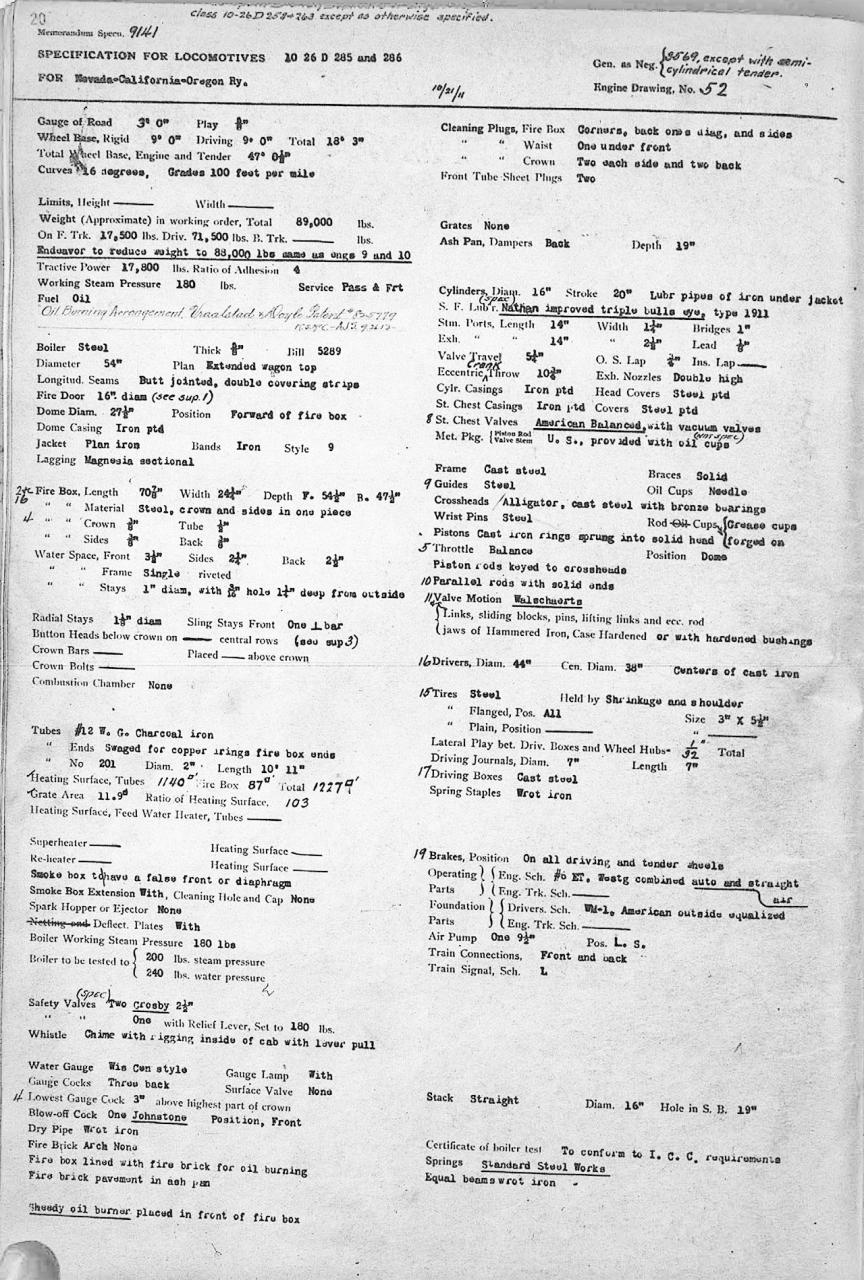 20
Class 10-26 D 258 + 263 except as otherwise specified.
Memorandum Specn. 9141
SPECIFICATION FOR LOCOMOTIVES 10 26 D 285 and 286
FOR Nevada-California-Oregon Ry.
10/21/11
Gen. as Neg. { 3569, except with semi-cylindrical tender.
Engine Drawing, No. 52
Gauge of Road 3' 0" Play ⅜"
Wheel Base, Rigid 9' 0" Driving 9' 0" Total 18' 3"
Total Wheel Base, Engine and Tender 47' 0½"
Curves 16 degrees, Grades 100 feet per mile
Limits, Height —— Width ——
Weight (Approximate) in working order, Total 89,000 lbs.
On F. Trk. 17,500 lbs. Driv. 71,500 lbs. B. Trk. —— lbs.
Endeavor to reduce weight to 88,000 lbs same as engs 9 and 10
Tractive Power 17,800 lbs. Ratio of Adhesion 4
Working Steam Pressure 180 lbs. Service Pass & Frt
Fuel Oil
Oil Burning Arrangement, Vraalstad & Doyle Patent #
Boiler Steel Thick ⅝" Bill 5289
Diameter 54" Plan Extended wagon top
Longitud. Seams Butt jointed, double covering strips
Fire Door 16" diam (see sup. 1)
Dome Diam. 27½" Position Forward of fire box
Dome Casing Iron ptd
Jacket Plan iron Bands Iron Style 9
Lagging Magnesia sectional
Fire Box, Length 70⅞" Width 24¼" Depth F. 54½" B. 47½"
" " Material Steel, crown and sides in one piece
4 " " Crown ⅜" Tube ½"
" " Sides ⅜" Back ⅜"
Water Space, Front 3½" Sides 2½" Back 2½"
" " Frame Single riveted
" " Stays 1" diam, with hole 1¼" deep from outside
Radial Stays 1⅛" diam Sling Stays Front One ⊥ bar
Button Heads below crown on —— central rows (see sup 3)
Crown Bars —— Placed —— above crown
Crown Bolts ——
Combustion Chamber None
Tubes #12 W. G. Charcoal iron
" Ends Swaged for copper irings fire box ends
" No 201 Diam. 2" Length 10' 11"
Heating Surface, Tubes 1140□' Fire Box 87□' Total 1227□'
Grate Area 11.9□ Ratio of Heating Surface. 103
Heating Surface, Feed Water Heater, Tubes ——
Superheater —— Heating Surface ——
Re-heater —— Heating Surface ——
Smoke box to have a false front or diaphragm
Smoke Box Extension With, Cleaning Hole and Cap None
Spark Hopper or Ejector None
Netting and Deflect. Plates With
Boiler Working Steam Pressure 180 lbs
Boiler to be tested to { 200 lbs. steam pressure
240 lbs. water pressure
Safety Valves (spec) Two Crosby 2½"
" " One with Relief Lever, Set to 180 lbs.
Whistle Chime with rigging inside of cab with lever pull
Water Gauge Wis Cen style Gauge Lamp With
Gauge Cocks Three back Surface Valve None
4 Lowest Gauge Cock 3" above highest part of crown
Blow-off Cock One Johnstone Position, Front
Dry Pipe Wrot iron
Fire Brick Arch None
Fire box lined with fire brick for oil burning
Fire brick pavement in ash pan
Sheedy oil burner placed in front of fire box
Cleaning Plugs, Fire Box Corners, back ones diag, and sides
" " Waist One under front
" " Crown Two each side and two back
Front Tube Sheet Plugs Two
Grates None
Ash Pan, Dampers Back Depth 19"
Cylinders, Diam. 16" Stroke 20" Lubr pipes of iron under jacket
S. F. Lub'r. (spec) Nathan improved triple bulls eye, type 1911
Stm. Ports, Length 14" Width 1¼" Bridges 1"
Exh. " " 14" " 2½" Lead ⅛"
Valve Travel 5¼" O. S. Lap ¾" Ins. Lap ——
Eccentric Crank Throw 10¾" Exh. Nozzles Double high
Cylr. Casings Iron ptd Head Covers Steel ptd
St. Chest Casings Iron ptd Covers Steel ptd
8 St. Chest Valves American Balanced, with vacuum valves
Met. Pkg. { Piston Rod Valve Stem U. S., provided with oil cups
Frame Cast steel Braces Solid
9 Guides Steel Oil Cups Needle
Crossheads Alligator, cast steel with bronze bearings
Wrist Pins Steel Rod Oil Cups { Grease cups forged on
Pistons Cast iron rings sprung into solid head
5 Throttle Balance Position Dome
Piston rods keyed to crossheads
10 Parallel rods with solid ends
11 Valve Motion Walschaerts
{ Links, sliding blocks, pins, lifting links and ecc. rod
jaws of Hammered Iron, Case Hardened or with hardened bushings
16 Drivers, Diam. 44" Cen. Diam. 38" Centers of cast iron
15 Tires Steel Held by Shrinkage and shoulder
" Flanged, Pos. All Size 3" X 5½"
" Plain, Position —— " ——
Lateral Play bet. Driv. Boxes and Wheel Hubs- 1/32" Total
Driving Journals, Diam. 7" Length 7"
17 Driving Boxes Cast steel
Spring Staples Wrot iron
19 Brakes, Position On all driving and tender wheels
Operating Parts { Eng. Sch. #6 ET, Westg combined auto and straight air
Eng. Trk. Sch. ——
Foundation Parts { Drivers. Sch. WM-1, American outside equalized
Eng. Trk. Sch. ——
Air Pump One 9½" Pos. L. S.
Train Connections, Front and back
Train Signal, Sch. L
Stack Straight Diam. 16" Hole in S. B. 19"
Certificate of boiler test To conform to I. C. C. requirements
Springs Standard Steel Works
Equal beams wrot iron